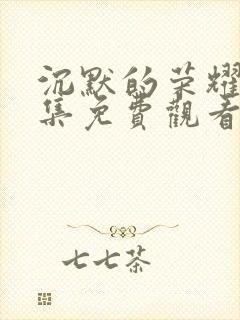 沉默的荣耀
集免費觀看
七七茶